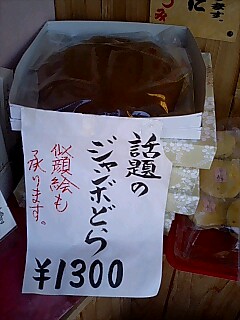 話題の
ジャンボどら
似顔絵も
承ります。
¥1300